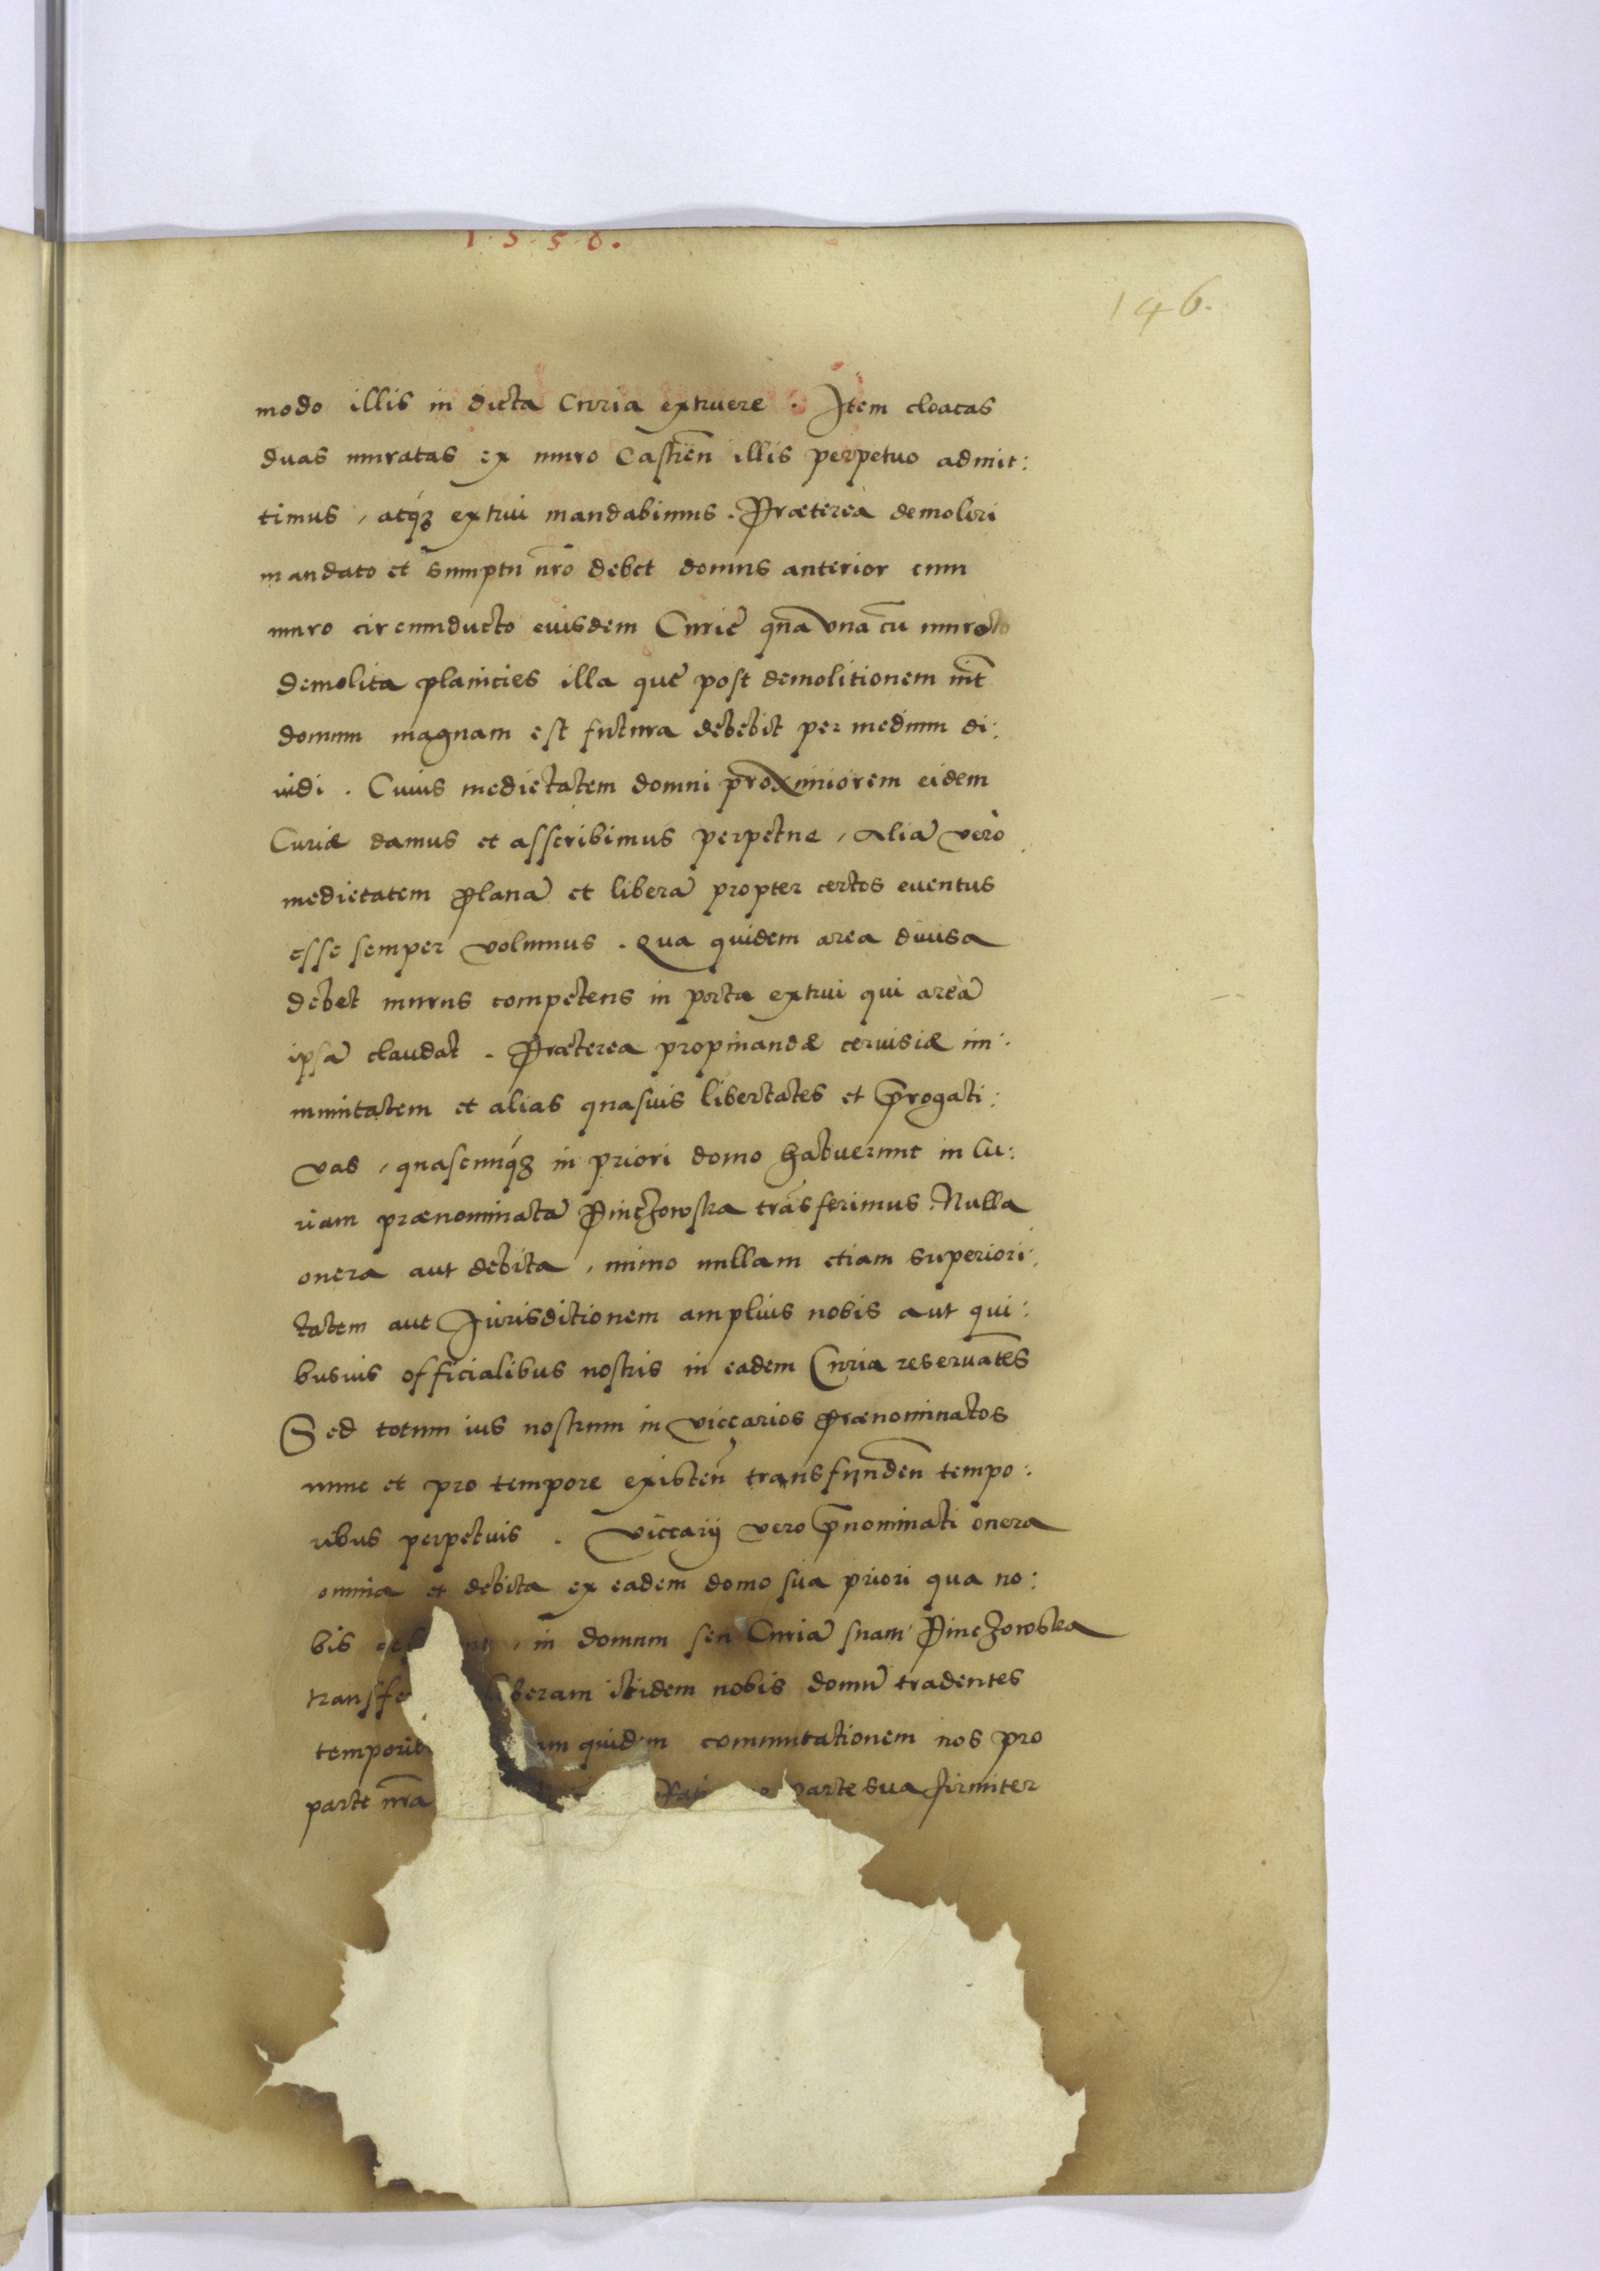 1.5.5.0.
146.
modo illis in dicta Curia extruere. Item cloacas
duas muratas ex muro Castren̄ illis perpetuo admit:
timus, atq́ꝫ extrui mandabimus. Præterea demoliri
mandato et sumptu nr̄o debet domus anterior cum
muro circumducto eiusdem Curię qua᷈ una cu᷈ muro
demolita planicies illa quę post demolitionem int̄
domum magnam est futura debebit per medium di:
uidi. Cuius medietatem domui proximiorem eidem
Curiæ damus et asscribimus perpetue, Alia᷈ verò
medietatem plana᷈ et libera᷈ propter certos euentus
esse semper volumus. Qua quidem area diuisa
debet murus competens in porta extrui qui area᷈
ipsa᷈ claudat. Præterea propinandæ ceruisiæ im:
munitatem et alias quasuis libertates et p̄rogati:
vas, quascunq́ꝫ in priori domo habuerunt in Cu:
riam prænominata᷈ Pinczowska tra᷈sferimus. Nulla
onera aut debita, immo nullam etiam superiori:
tatem aut Jurisditionem amplius nobis aut qui:
busuis officialibus nostris in eadem Curia reserua᷈tes
Sed totum ius nostrum in viccarios prænominatos
nunc et pro tempore existen̄ transfunden̄ tempo:
ribus perpetuis. Viccarij vero p̄nominati onera
omnia et debita ex eadem domo sua priori qua no:
bis, in domum seu Curia᷈ suam Pinczowska
transfe liberam itidem nobis domu᷈ tradentes
tempori um quidem commutationem nos pro
parte nr̄a parte sua firmiter